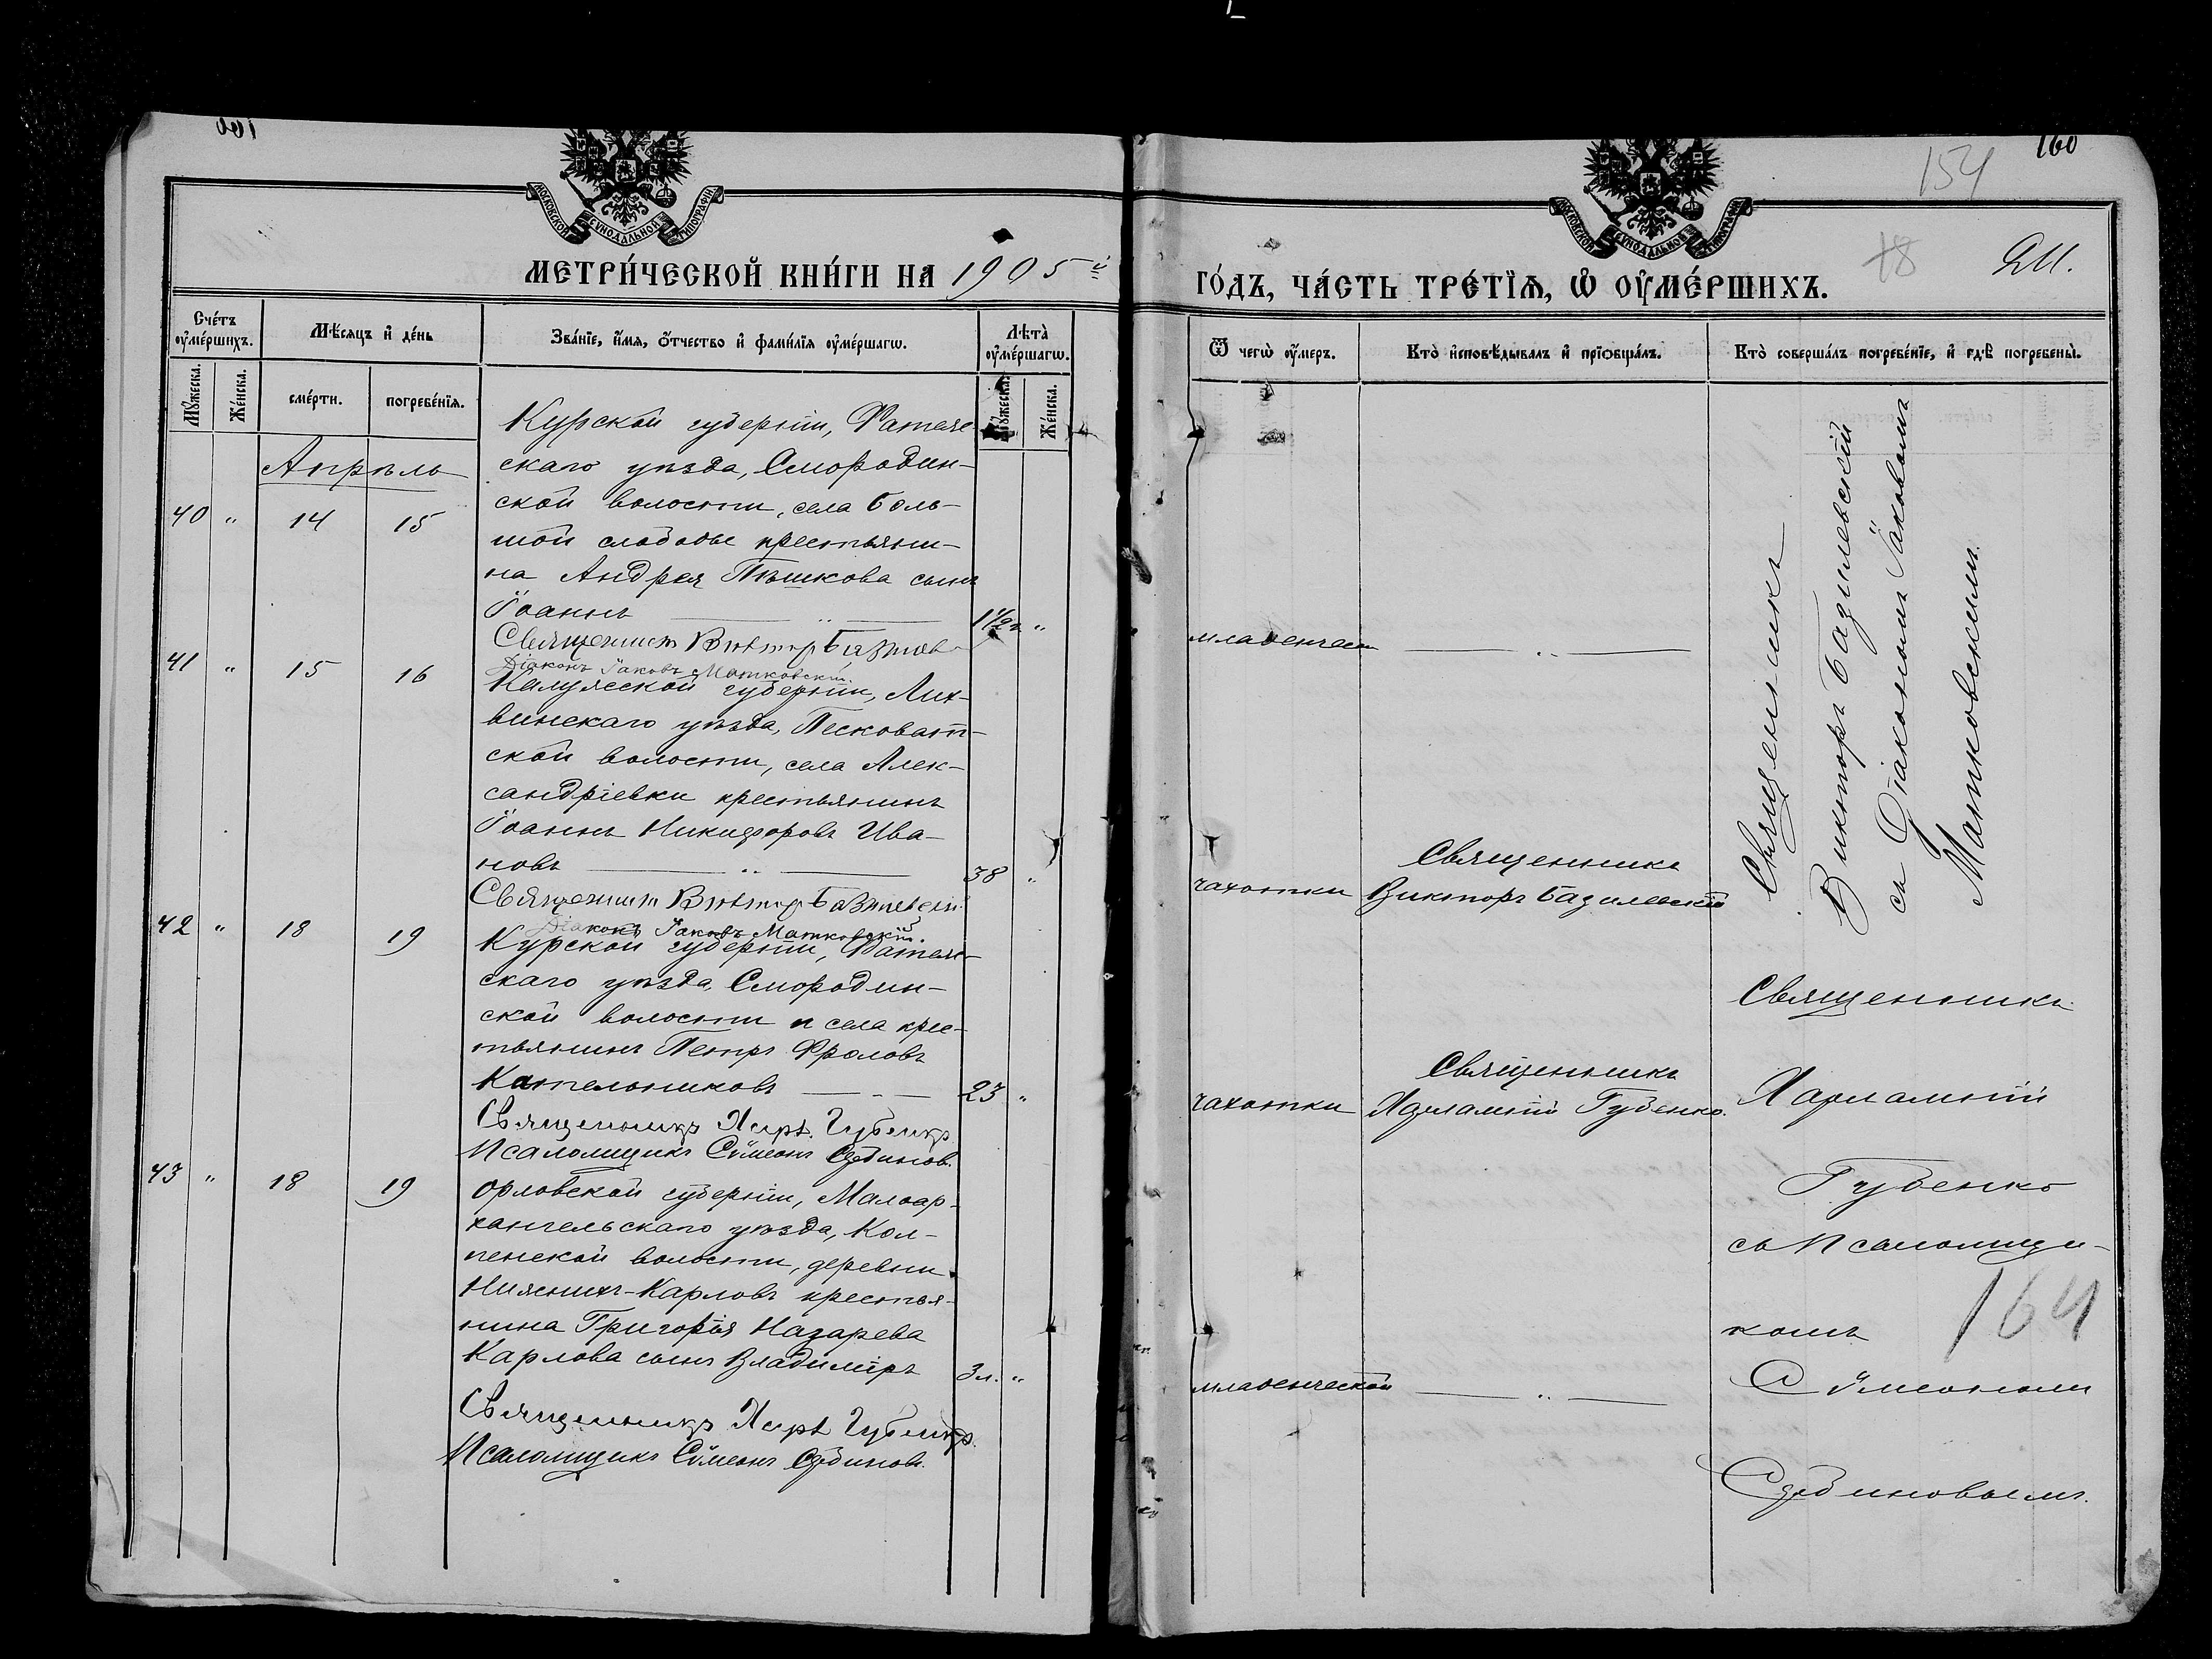 160
МОСКОВСКОЙ СУНОДАЛЬНОЙ ТИПОГРАФІИ
МЕТРИ́ЧЕСКОЙ КНИ́ГИ НА 1905й
Сче́тъ ᲂу҆ме́ршихъ.
Мѣ́сяцъ и҆ де́нь
Зва́нїе, и҆́мя, ѻ҆́тчество и҆ фами́лїя ᲂу҆ме́ршагѡ.
Лѣта̀ ᲂу҆ме́ршагѡ.
Мꙋ́жеска.
Же́нска.
сме́рти.
погребе́нїя.
Мꙋ́жеска.
Же́нска.
Апрѣль
40 " 14 15
Курской губерніи, Фатеж-
скаго уѣзда, Смородин-
ской волости, села Боль-
шой слободы крестьяни-
на Андрея Пѣшкова сынъ
Іоаннъ 1½ г. "
Священникъ Викторъ Базилев
Діаконъ Іаковъ Матковскій.
41 " 15 16
Калужской губерніи, Лих-
винскаго уѣзда, Песковат-
ской волости, села Алек-
сандріевки крестьянинъ
Іоаннъ Никифоровъ Ива-
новъ 38 "
Священникъ Викторъ Базилевскій
Діаконъ Іаковъ Матковскій.
42 " 18 19
Курской губерніи, Фатеж-
скаго уѣзда, Смородин-
ской волости и села крес-
тьянинъ Петръ Фроловъ
Котельниковъ 23 "
Священникъ Харл. Губенко
Псаломщикъ Сѵмеонъ
43 " 18 19
Орловской губерніи, Малоар-
хангельскаго уѣзда, Кол-
пенской волости, деревни
Нижнихъ-Карловъ крестья-
нина Григорія Назарева
Карлова сынъ Владиміръ 3 л. "
Священникъ Харл Губенко.
Псаломщикъ Сѵмеонъ
160
154
МОСКОВСКОЙ СУНОДАЛЬНОЙ ТИПОГРАФІИ
ГО́ДЪ, ЧА́СТЬ ТРЕ́ТЇѦ, Ѡ҆ ОУ҆МЕ́РШИХЪ.
18
Ѿ чегѡ̀ ᲂу҆́меръ.
Кто̀ и҆сповѣ́дывалъ и҆ прїѡбща́лъ.
Кто̀ соверша́лъ погребе́нїе, и҆ гдѣ̀ погребены̀.
младенческ
Священникъ
Викторъ Базилевскій
съ Діакономъ Іаковомъ
Матковскимъ.
чахотки
Священникъ
Викторъ Базилевскій
чахотки
Священникъ
Харлампій Губенко.
младенческой
Священникъ
Харлампій
Губенко
съ Псаломщи-
комъ
164
Сѵмеономъ